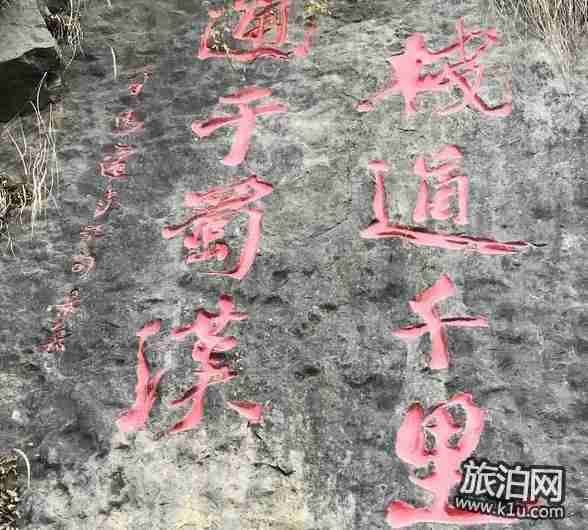 棧道千里
通于蜀漢
旅泊网
www.k1u.com